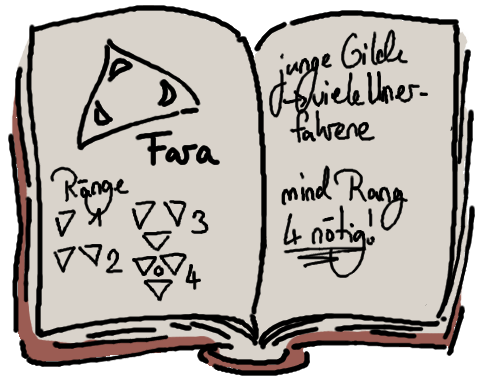 Fara
Ränge
1
3
2
4
junge Gilde
→ viele Uner-
fahrene
mind Rang
4 nötig!